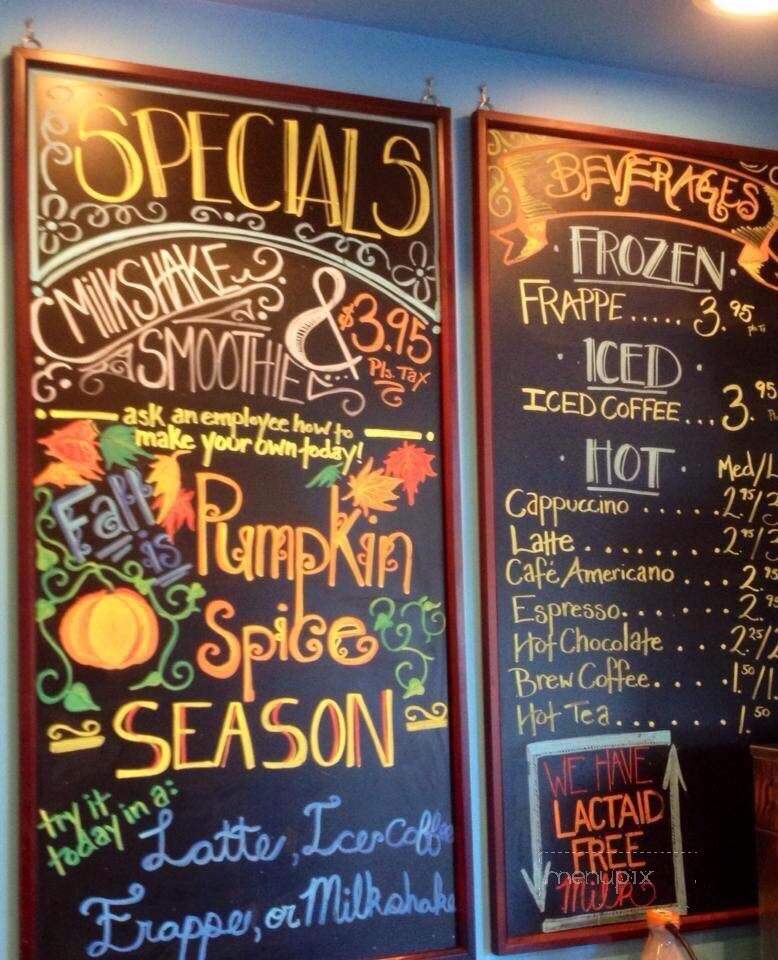 SPECIALS
MilkSHAKE
& $3.95
SMOOTHIE
Pls. Tax
ask an employee how to
make your own today!
Fall is
Pumpkin
Spice
SEASON
try it
today in a:
Latte, Ice Coffee
Frappe, or Milkshake
BEVERAGES
FROZEN
FRAPPE..... 3.95
ICED
ICED COFFEE... 3.95
HOT
Med/L
Cappuccino ..... 2.95/3
Latte ........ 2.95/3
Café Americano ... 2.95
Espresso...... 2.95
Hot Chocolate .. 2.25/2
Brew Coffee.... 1.50/1
Hot Tea...... 1.50
WE HAVE
LACTAID
FREE
Milk
menupix